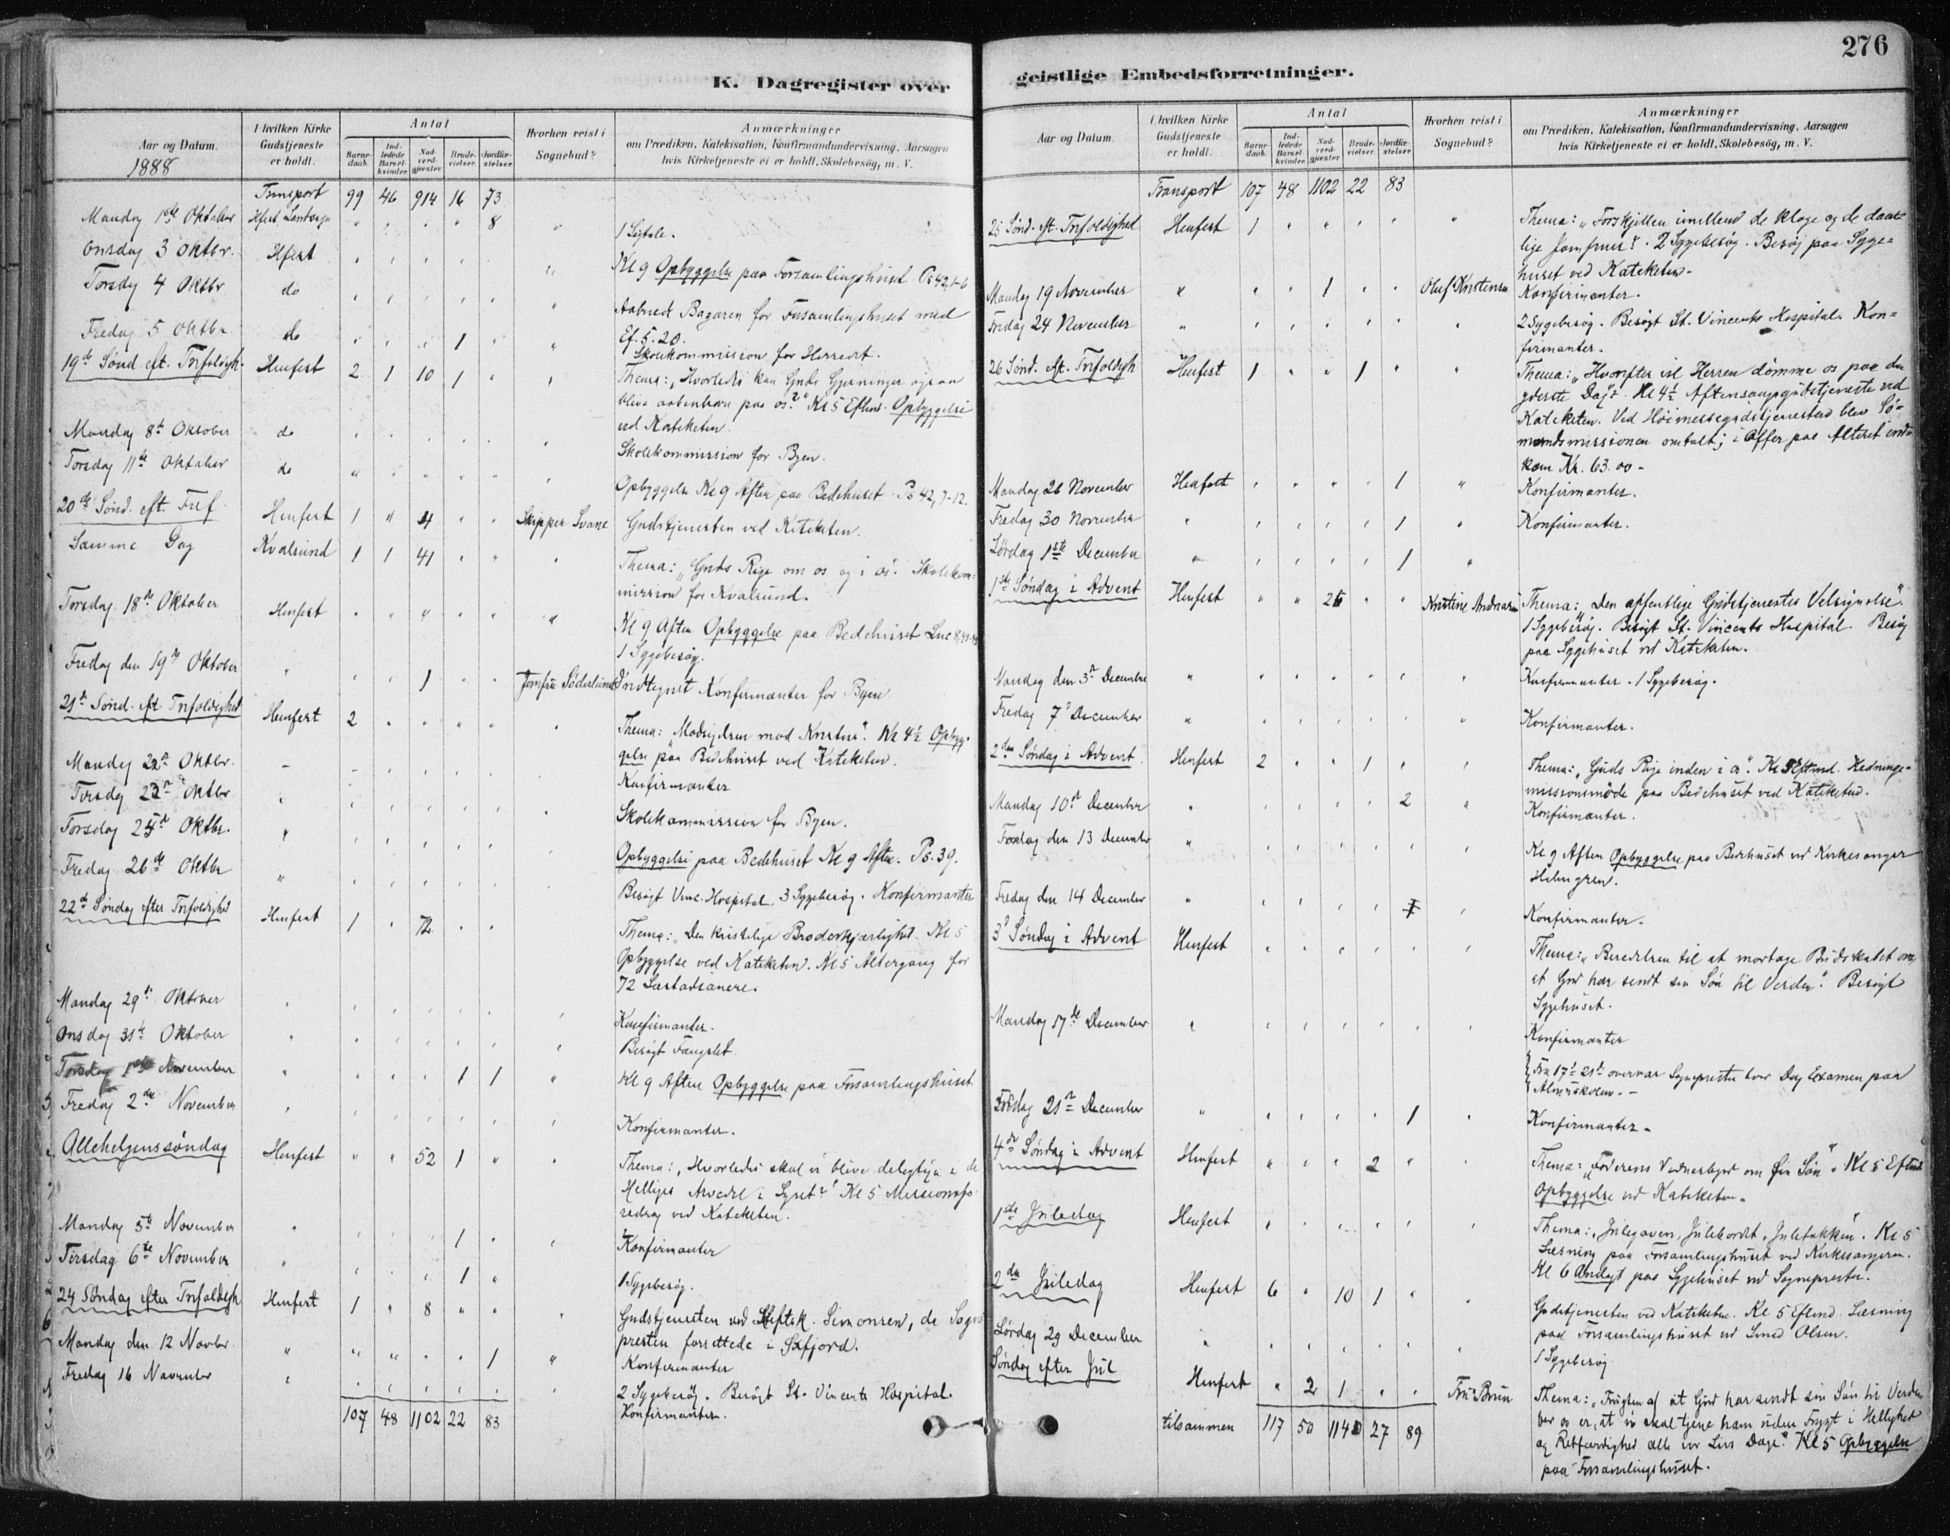 276
K. Dagregister over
geistlige Embedsforretninger.
Aar og Datum.
1888
I hvilken Kirke
Gudstjeneste
er holdt.
Antal
Barne-
daab.
Ind-
ledede
Barsel-
kvinder
Nad-
verd-
gjæster
Brude-
vielser
Jordfæ-
stelser
Hvorhen reist i
Sognebud?
Anmærkninger
om Prædiken, Katekisation, Konfirmandundervisning. Aarsagen
hvis Kirketjeneste ei er holdt, Skolebesøg, m. V.
Transport 99 46 914 16 73
Mandag 1ste Oktober Hfest 8
Onsdag 3 Oktbr. Hfest Kl 9 Opbyggelse paa Forsamlingshuset Ps 42, 1-6
Torsdg 4 Oktbr do Aabnedt Bazaren for Forsamlingshuset med
Ef. 5. 20.
Fredag 5 Oktbr do 1 Skolekommission for Herredt.
19de Sønd. eft. Trefoldigh. Hmfest 2 1 10 1 Thema: „Hvorledes kan Guds Gjerninger ogsaa
blive aabenbare paa os?" Kl 5 Eftmd. Opbyggelse
ved Kateketen.
Mandag 8de Oktober do Skolekommission for Byen.
Torsdag 11te Oktober do Opbyggelse Kl 9 Aften paa Bedehuset Ps 42, 7-12.
20de Sønd. eft. Tref. Hmfest 1 " 4 Skipper Svane Gudstjenesten ved Kateketen.
Samme Dag Kvalsund 1 1 41 Thema: „Guds Rige om os og i os". Skolekom-
mission for Kvalsund.
Torsdag 18de Oktober Hmfest Kl 9 Aften Opbyggelse paa Bedehuset Luc 8
1 Sygebesøg.
Fredag den 19de Oktober 1 Jomfru Söderlund Indtegnet Konfirmanter for Byen
21de Sønd. eft. Trefoldighed Hmfest 2 Thema: „Modsigelsen mod Kristus". Kl 4½ Opbyg-
gelse paa Bedehuset ved Kateketen.
Mandag 22de Oktbr. Konfirmanter
Tirsdg 23de Oktbr Skolekommission for Byen.
Torsdag 25de Oktbr. Opbyggelse paa Bedehuset Kl 9 Aften. Ps. 39.
Fredag 26de Oktbr Besøgt Vinc. Hospital. 3 Sygebesøg. Konfirmanter
22de Søndag efter Trefoldighed Hmfest 1 72 Thema: „Den kristelige Broderkjærlighed. Kl 5
Opbyggelse ved Kateketen. Kl 5 Altergang for
72 Læstadianere.
Mandag 29de Oktober Konfirmanter.
Onsdag 31te Oktober Besøgt Fængslet.
Torsdag 1ste November 1 1 Kl 9 Aften Opbyggelse paa Forsamlingshuset
Fredag 2den November Konfirmanter.
Allehelgenssøndag Hmfest " " 52 1 Thema: „Hvorledes skal vi blive delagtige i de
Helliges Arvedel i Lyset?" Kl 5 Missionsfo-
redrag ved Kateketen.
Mandag 5te November 1 Konfirmanter
Tirsdag 6te November 1 1 Sygebesøg.
24 Søndag efter Trefoldigh Hmfest 1 " 8 Gudstjenesten ved Simonsen, da Sogne
presten forrettede i Øxfjord.
Mandag den 12 Novbr. 1 Konfirmanter
Fredag 16 November 2 Sygebesøg. Besøgt St. Vincents Hospital.
Konfirmanter.
107 48 1102 22 83
Aar og Datum.
I hvilken Kirke
Gudstjeneste
er holdt.
Antal
Barne-
daab.
Ind-
ledede
Barsel-
kvinder
Nad-
verd-
gjæster
Brude-
vielser
Jordfæ-
stelser
Hvorhen reist i
Sognebud?
Anmærkninger
om Prædiken, Katekisation, Konfirmandundervisning. Aarsagen
hvis Kirketjeneste ei er holdt, Skolebesøg, m. V.
Transport 107 48 1102 22 83
25 Sønd. eft. Trefoldighed Hmfest 1 Thema: „Forskjellen imellem de kloge og de daar-
lige Jomfruer". 2 Sygebesøg. Besøg paa Syge-
huset ved Kateketen.
Mandag 19 November 1 Oluf Kristensen Konfirmanter.
Fredag 24 November 2 Sygebesøg. Besøgt St. Vincents Hospital. Kon-
firmanter.
26 Sønd. eft. Trefoldigh Hmfest 1 1 Thema: „Hvorefter vil Herren dømme os paa den
yderste Dag". Kl 4½ Aftensangsgudstjeneste ved
Kateketen. Ved Høimessegudstjenesten blev Sø-
mandsmissionen omtalt; i Offer paa Alteret ind-
kom Kr. 63.00
Mandag 26 November Hmfest 1 Konfirmanter.
Fredag 30 November 1 Konfirmanter.
Lørdag 1ste December 1
1ste Søndag i Advent Hmfest Kristine Thema: „Den offentlige Gudstjenestes Velsignelse".
1 Sygebesøg. Besøgt St. Vincents Hospital. Besøg
paa Sygehuset ved Kateketen.
Mandag den 3de Decembre Konfirmanter. 1 Sygebesøg.
Fredag 7de December Konfirmanter.
2den Søndag i Advent Hmfest 2 1 Thema: „Guds Rige inden i os". Kl 5 Eftmd. Hedninge-
missionsmøde paa Bedehuset ved Kateketen.
Mandag 10de December 2 Konfirmanter.
Torsdag den 13 December Kl 9 Aften Opbyggelse paa Bedehuset ved Kirkesanger
Holmgren.
Fredag den 14 December Konfirmanter.
3de Søndag i Advent Hmfest Thema: „Beredelsen til at mortage Budskabet om,
at Gud har sendt sin Søn til Verden". Besøgt
Sygehuset.
Mandag 17de December Konfirmanter
Fra 17de-21de overvar Sognepresten hver Dag Examen paa
Almueskolen.
Fredag 21de December 1 Konfirmanter.
4de Søndag i Advent Hmfest 2 Thema: „Faderens Vidnesbyrd om sin Søn". Kl 5 Eftmd
Opbyggelse ved Kateketen.
1ste Juledag Hmfest Thema: „Julegaven, Julebordet, Juletakken". Kl 5
Læsning paa Forsamlingshuset ved Kirkesangeren.
Kl 6 Andagt paa Sygehuset ved Sognepresten.
2den Juledag Hmfest 6 10 1 Gudstjenesten ved Kateketen. Kl. 5 Eftmd. Læsning
paa Forsamlingshuset ved Smed Olsen.
Lørdag 29 December 1 Sygebesøg
Søndag efter Jul Hmfest " 2 1 Fru Brun Thema: „Frugten af at Gud har sendt sin Søn til Verden
for os er, at vi skal tjene ham uden Frygt i Hellighed
og Retfærdighed alle vor Livs Dage". Kl 5 Opbyggelse
paa Forsamlingshuset.
tilsammen 117 50 1140 27 89